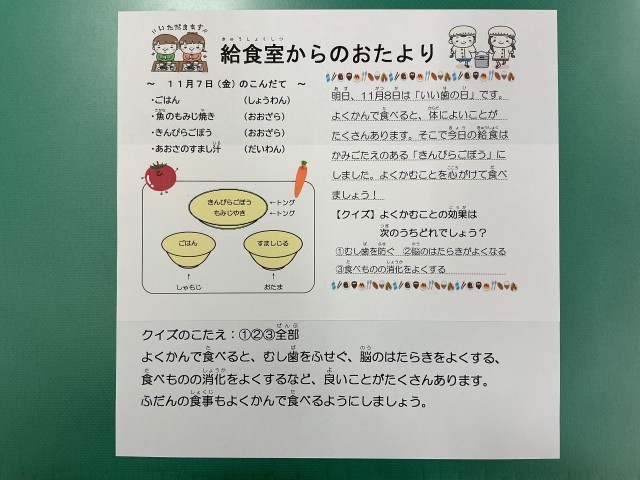 いただきます
給食室からのおたより
～ 11月7日（金）のこんだて ～
・ごはん （しょうわん）
・魚のもみじ焼き （おおざら）
・きんぴらごぼう （おおざら）
・あおさのすまし汁 （だいわん）
きんぴらごぼう ←トング
もみじやき ←トング
ごはん すましじる
↑ ↑
しゃもじ おたま
明日、11月8日は「いい歯の日」です。
よくかんで食べると、体によいことが
たくさんあります。そこで今日の給食は
かみごたえのある「きんぴらごぼう」に
しました。よくかむことを心がけて食べ
ましょう！
【クイズ】よくかむことの効果は
次のうちどれでしょう？
①むし歯を防ぐ ②脳のはたらきがよくなる
③食べものの消化をよくする
クイズのこたえ：①②③全部
よくかんで食べると、むし歯をふせぐ、脳のはたらきをよくする、
食べものの消化をよくするなど、良いことがたくさんあります。
ふだんの食事もよくかんで食べるようにしましょう。